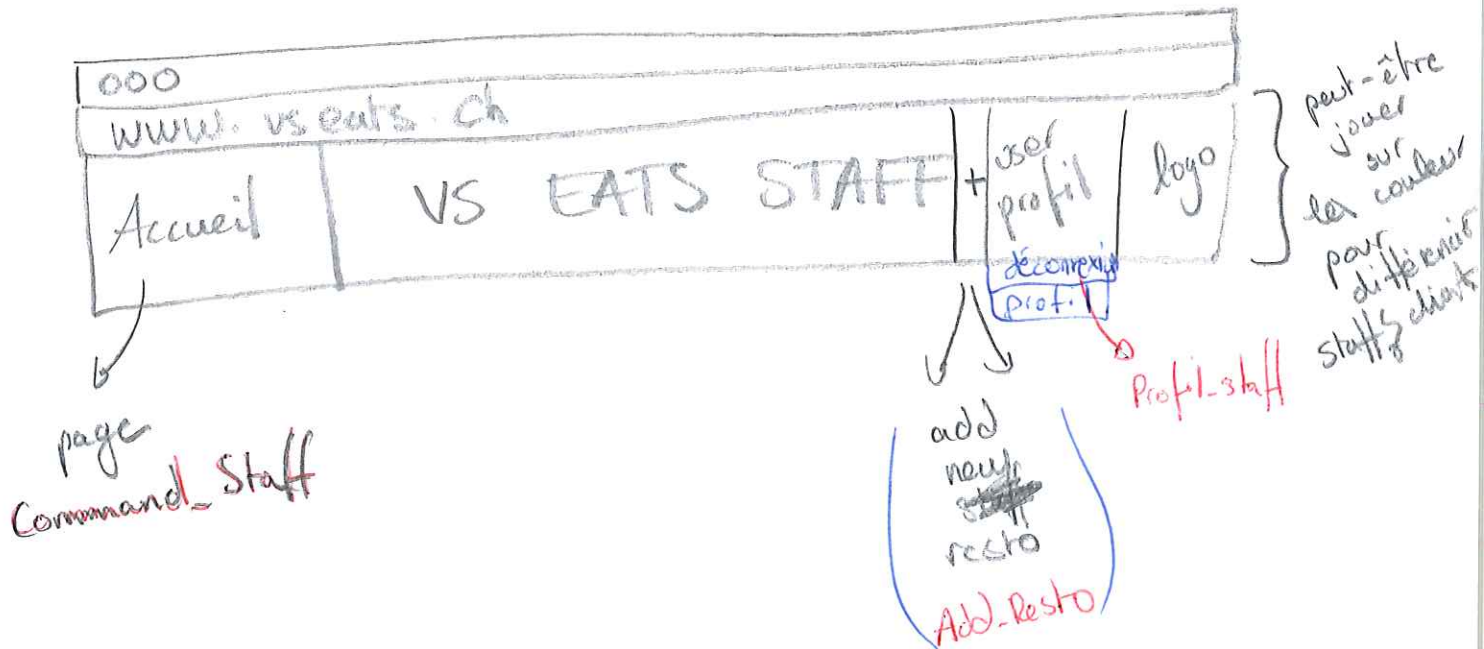 000
www.vseats.ch
Accueil
VS EATS STAFF
+
user
profil
logo
déconnexion
profil
peut-être
jouer
sur
les couleur
pour
différencier
staff & clients
page
Command_Staff
add
new
resto
Add_Resto
Profil_staff